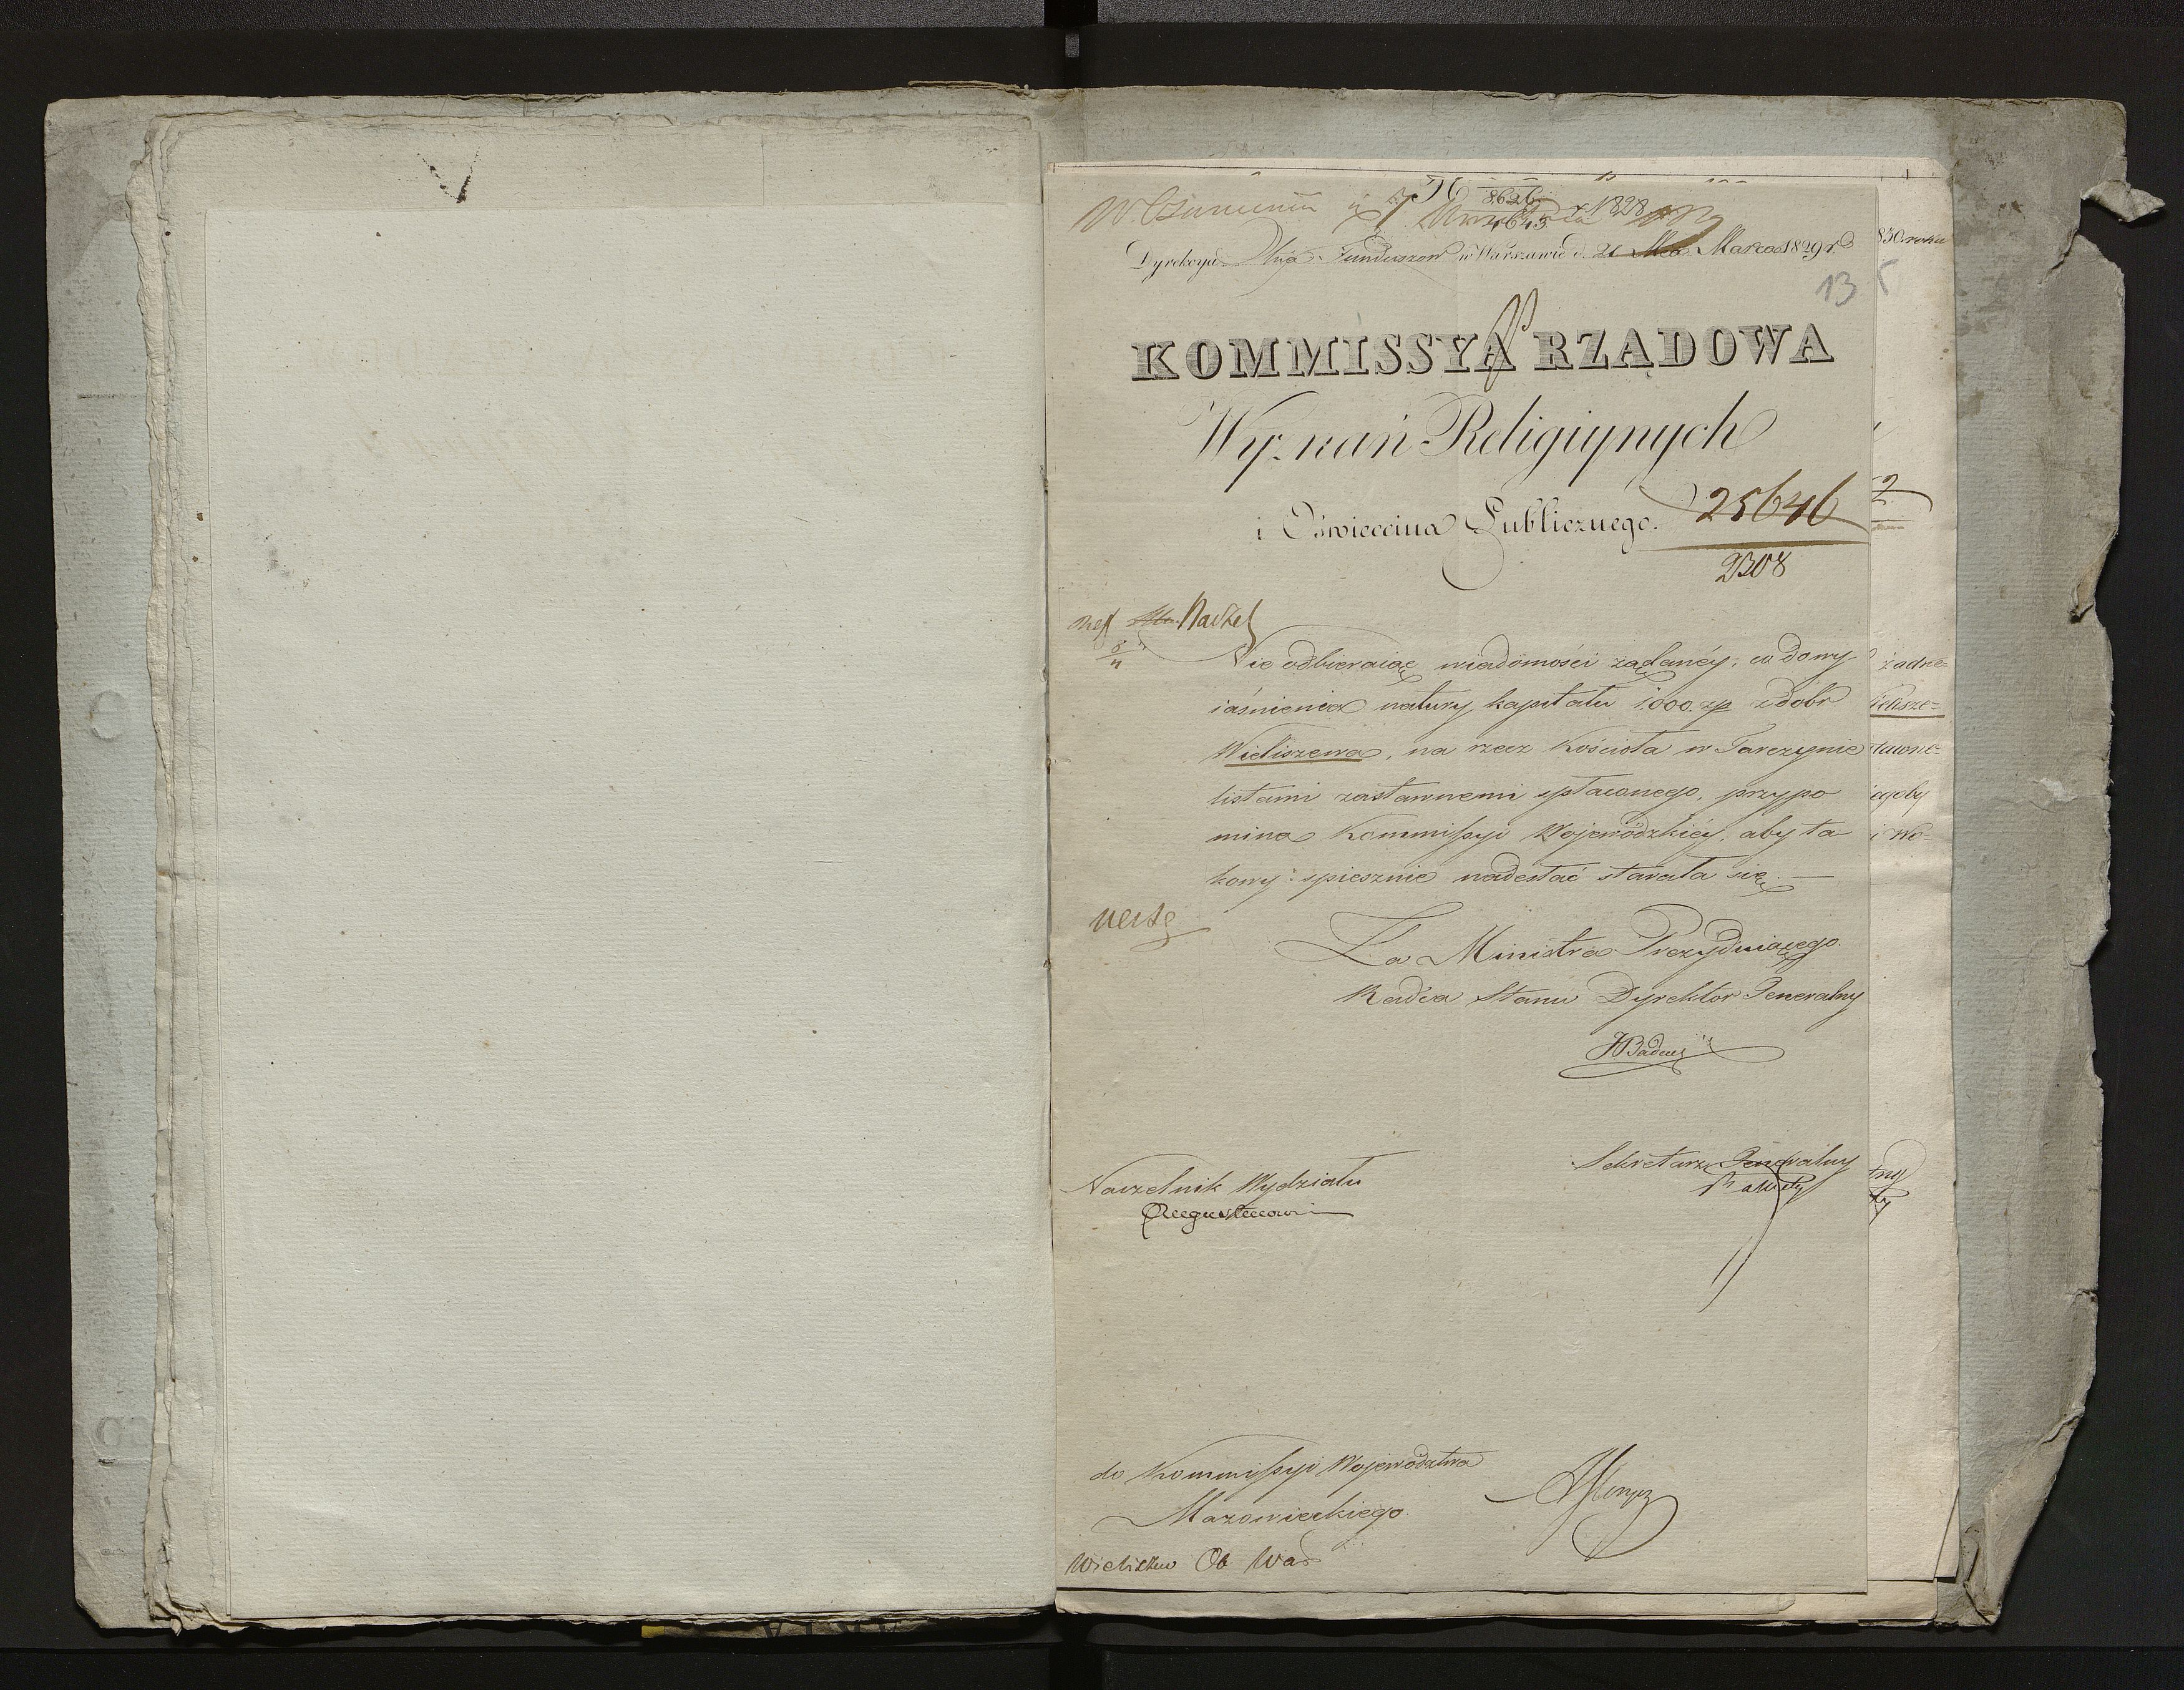 8626
4643
1828
Dyrekcya Funduszow w Warszawie d. 21 Marca 1829 r.
13
KOMMISSYA RZĄDOWA
Wyznań Religiynych
i Oświecenia Publicznego.
25646
2308
Nie odbieraiąc wiadomości żądanéy, co do wy-
iaśnienia natury kapitału 1,000 zp z dobr
Wieliszewa, na rzecz Kościoła w Tarczynie
listami zastawnemi spłaconego, przypo
mina Kommissyi Wojewódzkiéy, aby ta
kowy spiesznie nadesłać starała się. —
Za Ministra Prezyduiącego
Radca Stanu Dyrektor Jeneralny
Badeni
Sekretarz Jeneralny
Naczelnik Wydziału
do Kommissyi Województwa
Mazowieckiego.
Wieliszew Ob. War
830 roku
żadne-